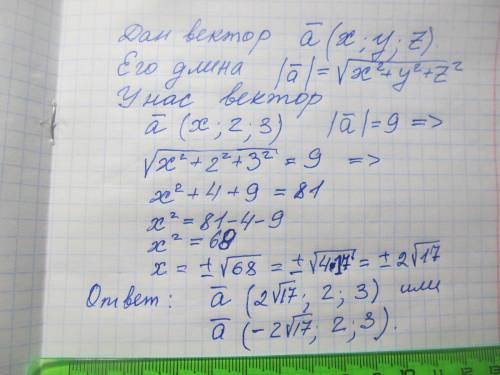 Дан вектор a̅ (x; y; z).
Его длина |a̅| = √(x²+y²+z²)
У нас вектор
a̅ (x; 2; 3) |a̅| = 9 =>
√(x²+2²+3²) = 9 =>
x²+4+9 = 81
x² = 81-4-9
x² = 68
x = ±√68 = ±√(4·17) = ±2√17
Ответ: a̅ (2√17; 2; 3) или
a̅ (-2√17; 2; 3).